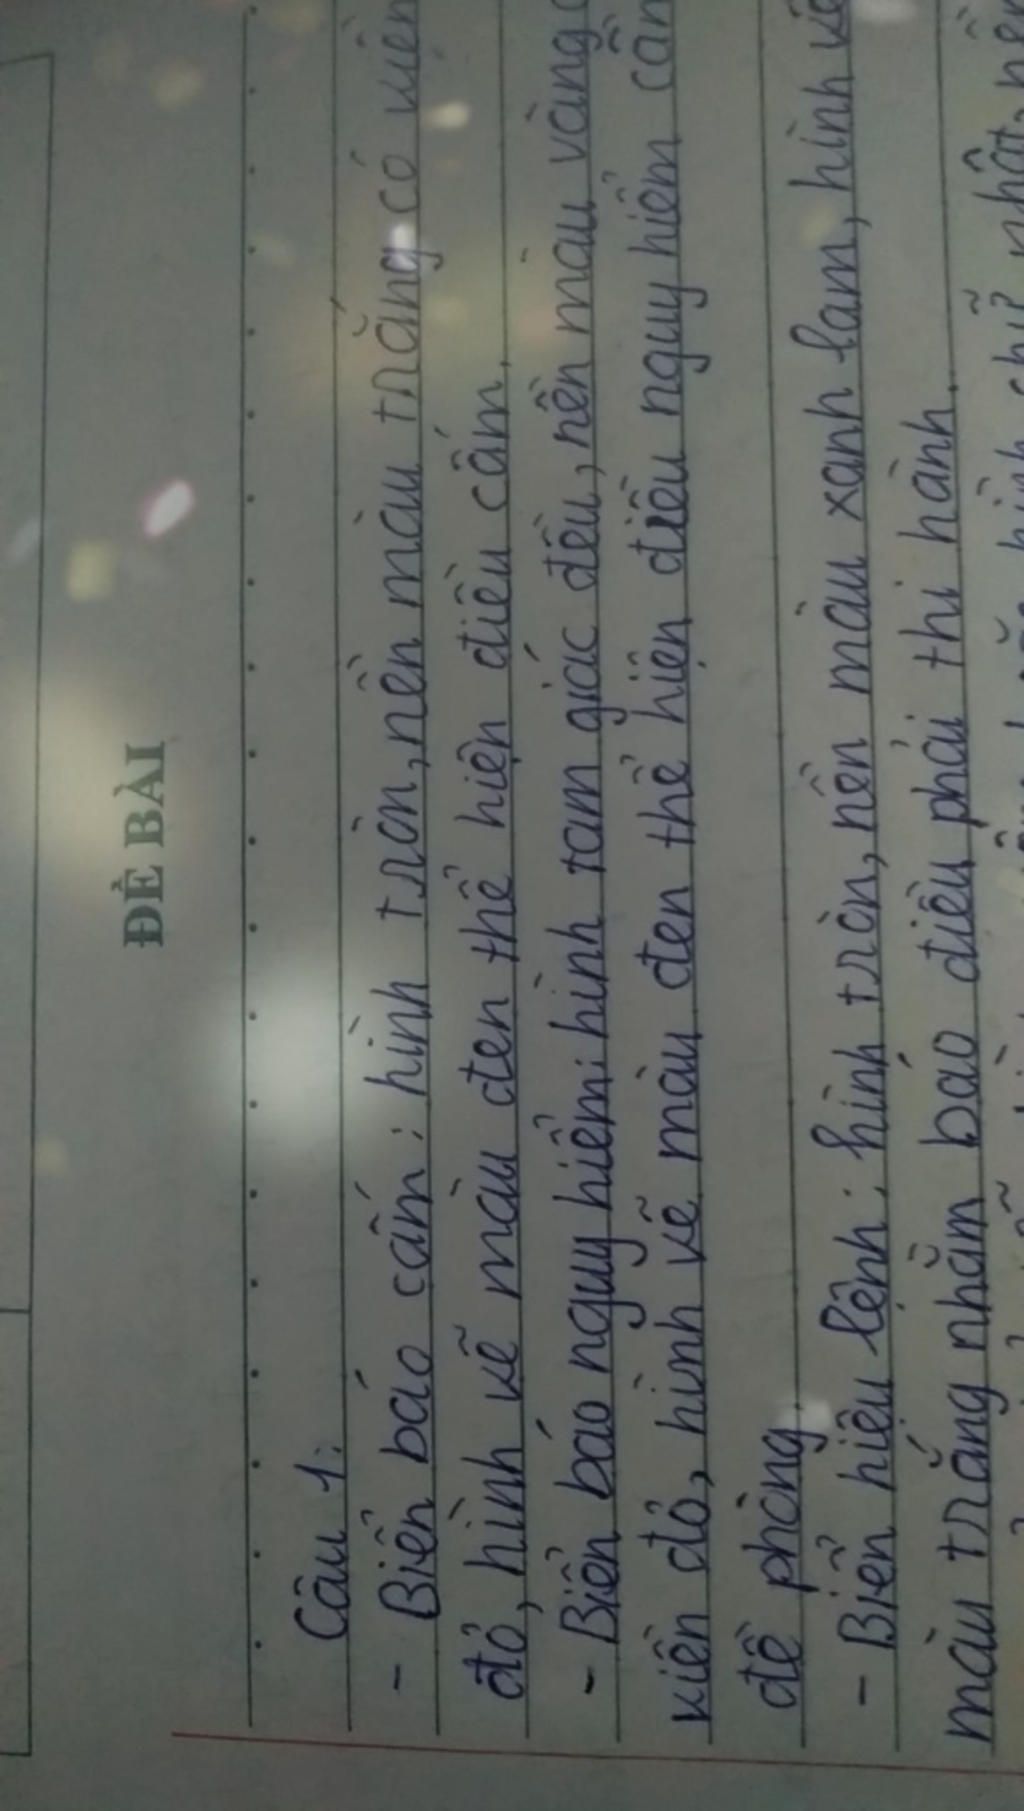 ĐỀ BÀI
Câu 1:
- Biển báo cấm: hình tròn, nền màu trắng có viền
đỏ, hình vẽ màu đen thể hiện điều cấm.
- Biển báo nguy hiểm: hình tam giác đều, nền màu vàng
viền đỏ, hình vẽ màu đen thể hiện điều nguy hiểm cần
đề phòng.
- Biển hiệu lệnh: hình tròn, nền màu xanh lam, hình vẽ
màu trắng nhằm báo điều phải thi hành.